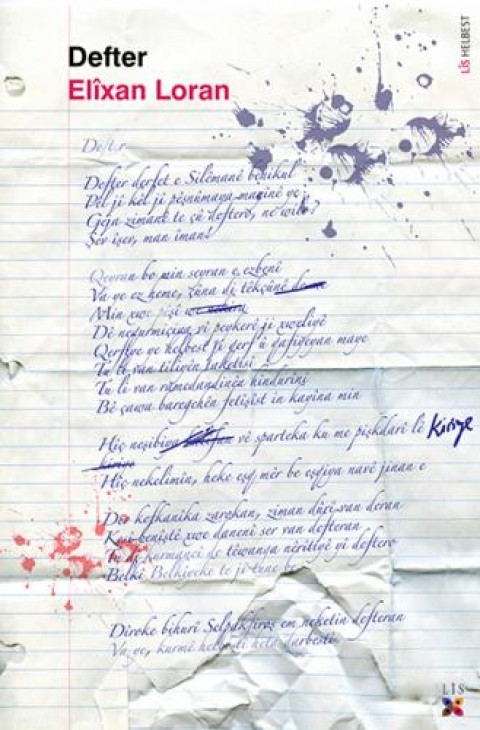 Defter
Elîxan Loran
LîS HELBEST
Defter
Defter derfet e Silêmanê bênikul
Pêl ji kêl ji pêşnûmaya maqînê ye
Geja zimanê te çû deftero, ne wilo?
Şêr îşer, man îman?
Qeyran bo min seyran e ezbenî
Va ye ez heme, çûna di têkçûnê
Min xwe pêşî
Dê negurmiçiya vî peykerê ji xweliyê
Qertîye ye helbest ji gerf û qafiyeyan maye
Tu li van tiliyên
Tu li van ramedandinên hindurîns
Bê çawa baregehên fetîşîst in kayîna min
Hiç neşibiya vê sparteka ku me pişkdarî lê Kiriye
kiriye
Hiç nekelimîn, heke eşq mêr be eşqiya navê jinan e
Der kefkanîka zarokan, ziman dûrî van deran
Kesî benîştê xwe danenî ser van defteran
Tu di kurmancî de têwanga nêrîtiyê yî deftero
Belkî Belkîyeke te jî tune be
Dîroke bihurî Selpakfiroş em neketin defteran
Va ye, kurmê helbestî heta darbestî
LîS